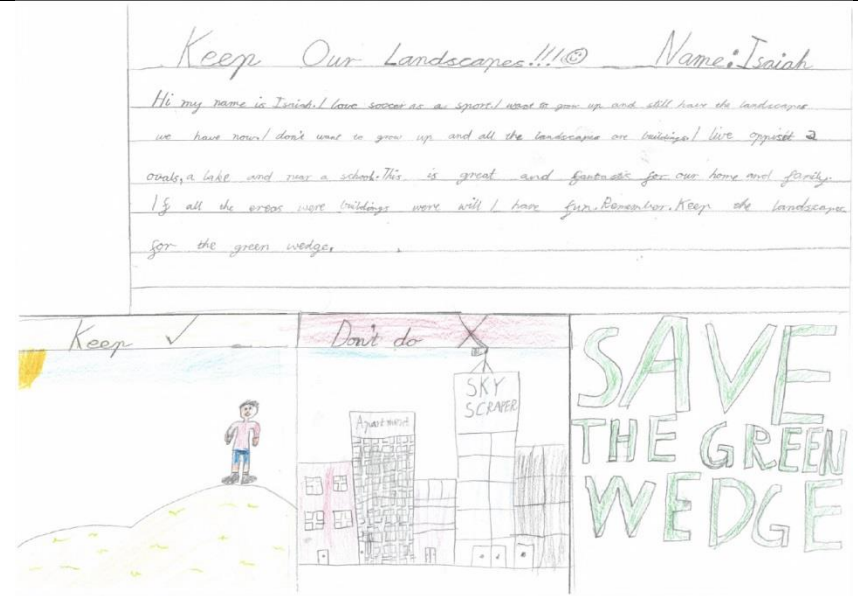 Keep Our Landscapes!!!☺ Name: Isaiah
Hi my name is Isaiah. I love soccer as a sport. I want to grow up and still have the landscapes
we have now. I don't want to grow up and all the landscapes are buildings. I live oppisit 2
ovals, a lake and near a school. This is great and fantastic for our home and family.
If all the areas were buildings were will I have fun. Remember. Keep the landscapes
for the green wedge.
Keep ✓
Don't do X
Apartment
SKY
SCRAPER
SAVE
THE GREEN
WEDGE